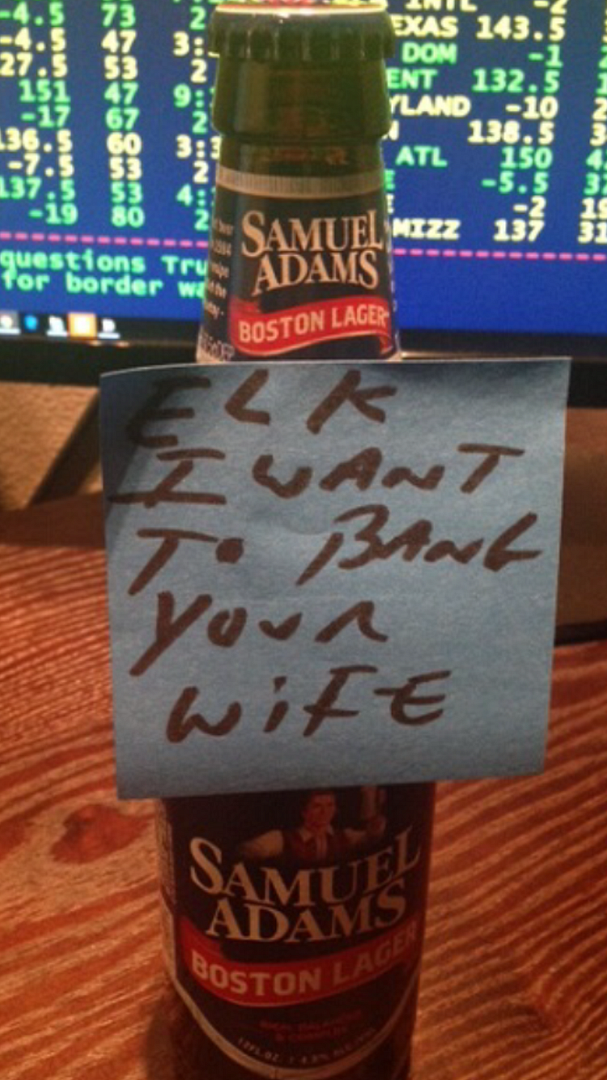 -4.5 73 2
-4.5 47 3:
27.5 53 2
151 47 9:
-17 67 2
136.5 60 3:3
-7.5 53 2
137.5 53 4:
-19 80 2
INTL -2
EXAS 143.5
DOM -1
ENT 132.5
YLAND -10
N 138.5 3
ATL 150 4
E -5.5 3
E -2 19
MIZZ 137 31
questions Tru
for border wa
SAMUEL
ADAMS
BOSTON LAGER
ELK
I WANT
To BANG
YOUR
WiFE
SAMUEL
ADAMS
BOSTON LAGER
12 FL. OZ.